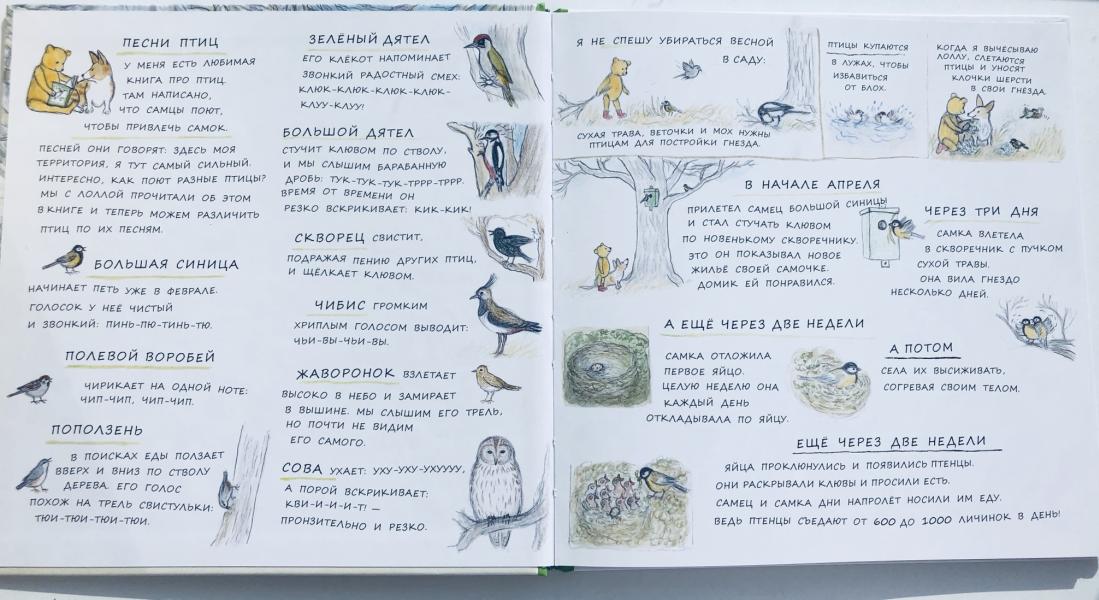 ПЕСНИ ПТИЦ
У МЕНЯ ЕСТЬ ЛЮБИМАЯ
КНИГА ПРО ПТИЦ.
ТАМ НАПИСАНО,
ЧТО САМЦЫ ПОЮТ,
ЧТОБЫ ПРИВЛЕЧЬ САМОК.
ПЕСНЕЙ ОНИ ГОВОРЯТ: ЗДЕСЬ МОЯ
ТЕРРИТОРИЯ, Я ТУТ САМЫЙ СИЛЬНЫЙ.
ИНТЕРЕСНО, КАК ПОЮТ РАЗНЫЕ ПТИЦЫ?
МЫ С ЛОЛЛОЙ ПРОЧИТАЛИ ОБ ЭТОМ
В КНИГЕ И ТЕПЕРЬ МОЖЕМ РАЗЛИЧИТЬ
ПТИЦ ПО ИХ ПЕСНЯМ.
БОЛЬШАЯ СИНИЦА
НАЧИНАЕТ ПЕТЬ УЖЕ В ФЕВРАЛЕ.
ГОЛОСОК У НЕЁ ЧИСТЫЙ
И ЗВОНКИЙ: ПИНЬ-ПЮ-ТИНЬ-ТЮ.
ПОЛЕВОЙ ВОРОБЕЙ
ЧИРИКАЕТ НА ОДНОЙ НОТЕ:
ЧИП-ЧИП, ЧИП-ЧИП.
ПОПОЛЗЕНЬ
В ПОИСКАХ ЕДЫ ПОЛЗАЕТ
ВВЕРХ И ВНИЗ ПО СТВОЛУ
ДЕРЕВА. ЕГО ГОЛОС
ПОХОЖ НА ТРЕЛЬ СВИСТУЛЬКИ:
ТЮИ-ТЮИ-ТЮИ-ТЮИ.
ЗЕЛЁНЫЙ ДЯТЕЛ
ЕГО КЛЁКОТ НАПОМИНАЕТ
ЗВОНКИЙ РАДОСТНЫЙ СМЕХ:
КЛЮК-КЛЮК-КЛЮК-КЛЮК-
КЛУУ-КЛУУ!
БОЛЬШОЙ ДЯТЕЛ
СТУЧИТ КЛЮВОМ ПО СТВОЛУ,
И МЫ СЛЫШИМ БАРАБАННУЮ
ДРОБЬ: ТУК-ТУК-ТУК-ТРРР-ТРРР.
ВРЕМЯ ОТ ВРЕМЕНИ ОН
РЕЗКО ВСКРИКИВАЕТ: КИК-КИК!
СКВОРЕЦ СВИСТИТ,
ПОДРАЖАЯ ПЕНИЮ ДРУГИХ ПТИЦ,
И ЩЁЛКАЕТ КЛЮВОМ.
ЧИБИС ГРОМКИМ
ХРИПЛЫМ ГОЛОСОМ ВЫВОДИТ:
ЧЬИ-ВЫ-ЧЬИ-ВЫ.
ЖАВОРОНОК ВЗЛЕТАЕТ
ВЫСОКО В НЕБО И ЗАМИРАЕТ
В ВЫШИНЕ. МЫ СЛЫШИМ ЕГО ТРЕЛЬ,
НО ПОЧТИ НЕ ВИДИМ
ЕГО САМОГО.
СОВА УХАЕТ: УХУ-УХУ-УХУУУУ,
А ПОРОЙ ВСКРИКИВАЕТ:
КВИ-И-И-И-Т! —
ПРОНЗИТЕЛЬНО И РЕЗКО.
Я НЕ СПЕШУ УБИРАТЬСЯ ВЕСНОЙ
В САДУ:
СУХАЯ ТРАВА, ВЕТОЧКИ И МОХ НУЖНЫ
ПТИЦАМ ДЛЯ ПОСТРОЙКИ ГНЕЗДА.
ПТИЦЫ КУПАЮТСЯ
В ЛУЖАХ, ЧТОБЫ
ИЗБАВИТЬСЯ
ОТ БЛОХ.
КОГДА Я ВЫЧЁСЫВАЮ
ЛОЛЛУ, СЛЕТАЮТСЯ
ПТИЦЫ И УНОСЯТ
КЛОЧКИ ШЕРСТИ
В СВОИ ГНЁЗДА.
В НАЧАЛЕ АПРЕЛЯ
ПРИЛЕТЕЛ САМЕЦ БОЛЬШОЙ СИНИЦЫ
И СТАЛ СТУЧАТЬ КЛЮВОМ
ПО НОВЕНЬКОМУ СКВОРЕЧНИКУ.
ЭТО ОН ПОКАЗЫВАЛ НОВОЕ
ЖИЛЬЁ СВОЕЙ САМОЧКЕ.
ДОМИК ЕЙ ПОНРАВИЛСЯ.
ЧЕРЕЗ ТРИ ДНЯ
САМКА ВЛЕТЕЛА
В СКВОРЕЧНИК С ПУЧКОМ
СУХОЙ ТРАВЫ.
ОНА ВИЛА ГНЕЗДО
НЕСКОЛЬКО ДНЕЙ.
А ЕЩЁ ЧЕРЕЗ ДВЕ НЕДЕЛИ
САМКА ОТЛОЖИЛА
ПЕРВОЕ ЯЙЦО.
ЦЕЛУЮ НЕДЕЛЮ ОНА
КАЖДЫЙ ДЕНЬ
ОТКЛАДЫВАЛА ПО ЯЙЦУ.
А ПОТОМ
СЕЛА ИХ ВЫСИЖИВАТЬ,
СОГРЕВАЯ СВОИМ ТЕЛОМ.
ЕЩЁ ЧЕРЕЗ ДВЕ НЕДЕЛИ
ЯЙЦА ПРОКЛЮНУЛИСЬ И ПОЯВИЛИСЬ ПТЕНЦЫ.
ОНИ РАСКРЫВАЛИ КЛЮВЫ И ПРОСИЛИ ЕСТЬ.
САМЕЦ И САМКА ДНИ НАПРОЛЁТ НОСИЛИ ИМ ЕДУ.
ВЕДЬ ПТЕНЦЫ СЪЕДАЮТ ОТ 600 ДО 1000 ЛИЧИНОК В ДЕНЬ!